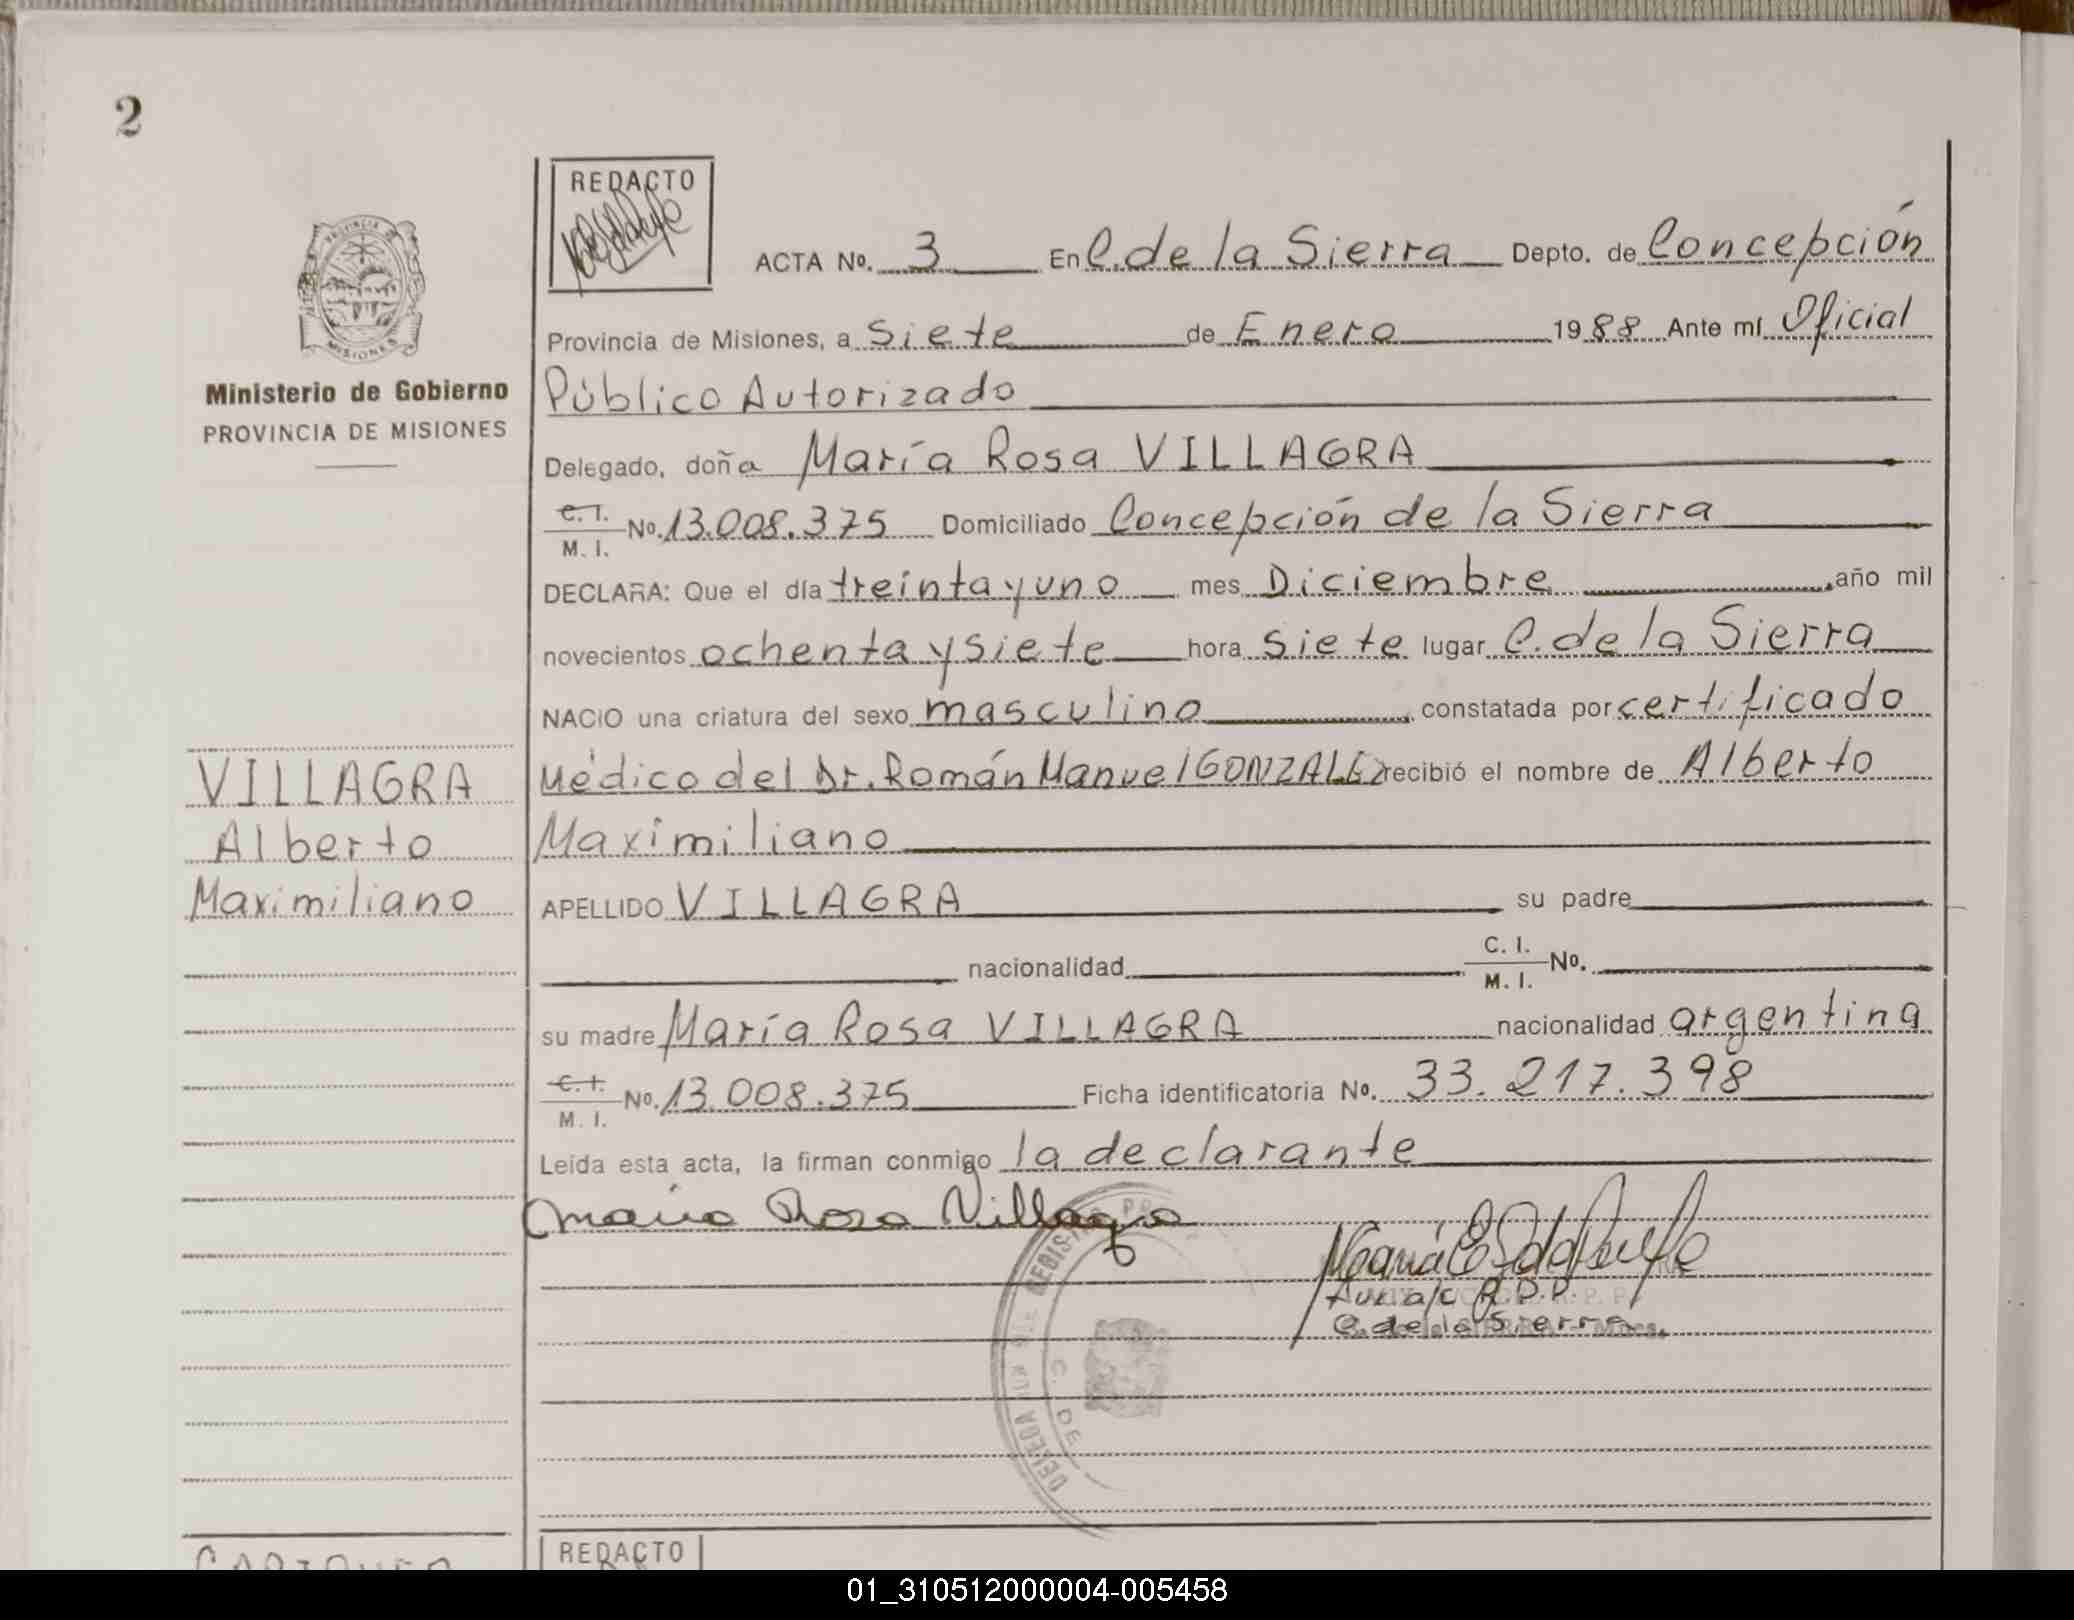 2
REDACTO
ACTA No. 3 En C. de la Sierra Depto. de Concepción
Provincia de Misiones, a Siete de Enero 1988 Ante mí Oficial
Ministerio de Gobierno
PROVINCIA DE MISIONES
Público Autorizado
Delegado, doña María Rosa VILLAGRA
C. I.
M. I.
No. 13.008.375 Domiciliado Concepción de la Sierra
DECLARA: Que el día treinta y uno mes Diciembre año mil
novecientos ochenta y siete hora siete lugar C. de la Sierra
NACIO una criatura del sexo masculino constatada por certificado
Médico del Dr. Román Manuel GONZALEZ recibió el nombre de Alberto
Maximiliano
VILLAGRA
Alberto
Maximiliano
APELLIDO VILLAGRA su padre
nacionalidad C. I.
M. I.
No.
su madre María Rosa VILLAGRA nacionalidad argentina
C. I.
M. I.
No. 13.008.375 Ficha identificatoria No. 33.217.398
Leída esta acta, la firman conmigo la declarante
María Rosa Villagra
Aux a/c R.P.P.
C. de la Sierra
C. DE
REDACTO
01_310512000004-005458